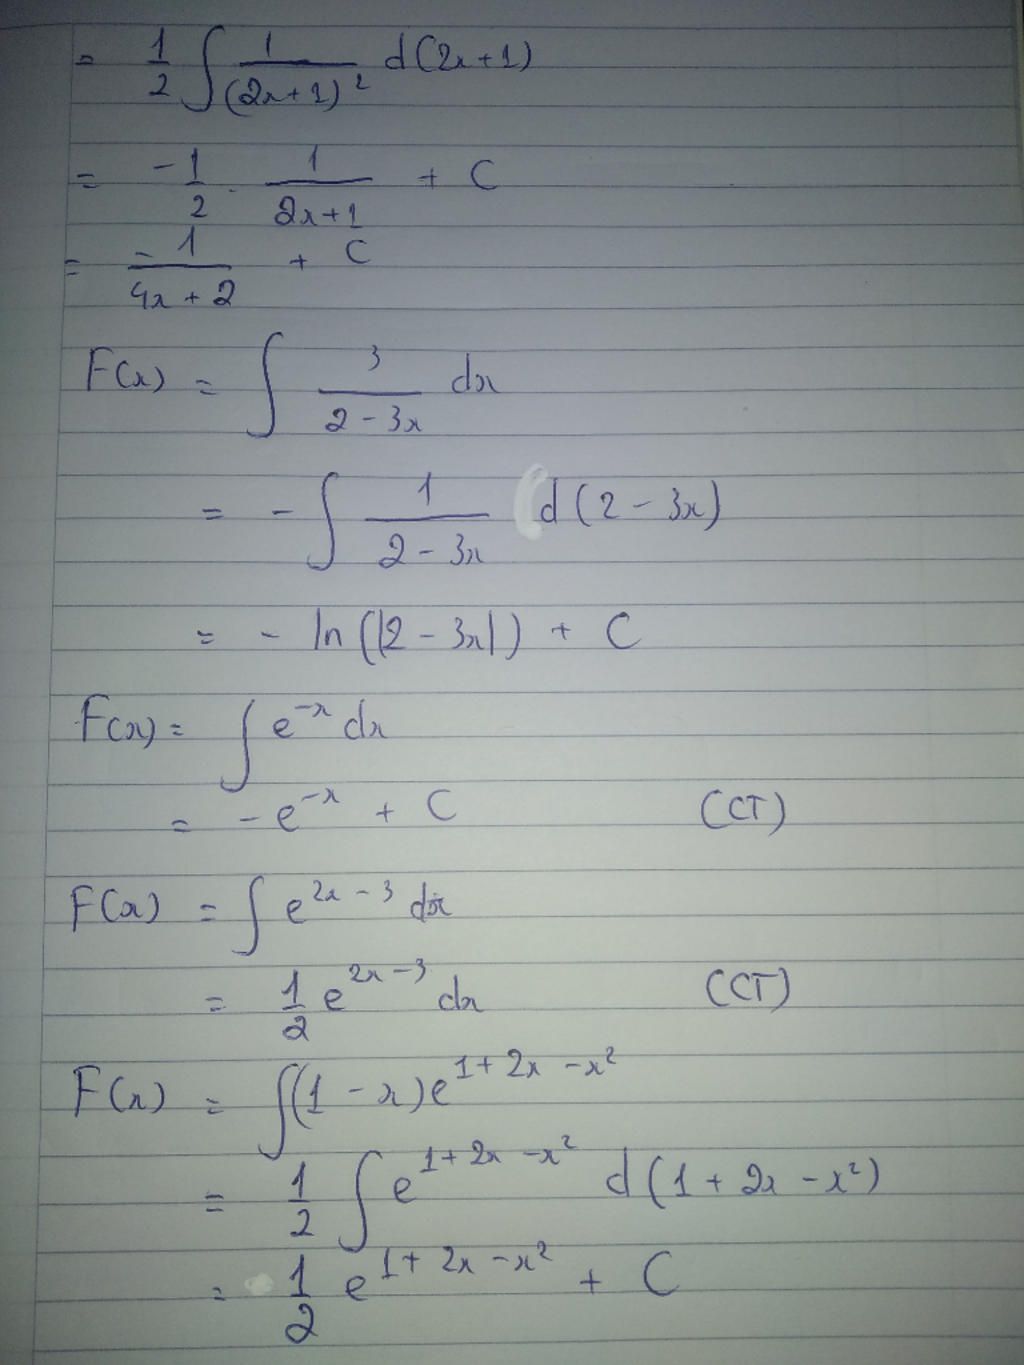 = 1/2 ∫ 1/(2x+1)² d(2x+1)
= -1/2 . 1/(2x+1) + C
= -1/(4x+2) + C
F(x) = ∫ 3/(2-3x) dx
= - ∫ 1/(2-3x) d(2-3x)
= - ln(|2-3x|) + C
F(x) = ∫ e^(-x) dx
= -e^(-x) + C (CT)
F(x) = ∫ e^(2x-3) dx
= 1/2 e^(2x-3) dx (CT)
F(x) = ∫(1-x)e^(1+2x-x²)
= 1/2 ∫ e^(1+2x-x²) d(1+2x-x²)
= 1/2 e^(1+2x-x²) + C